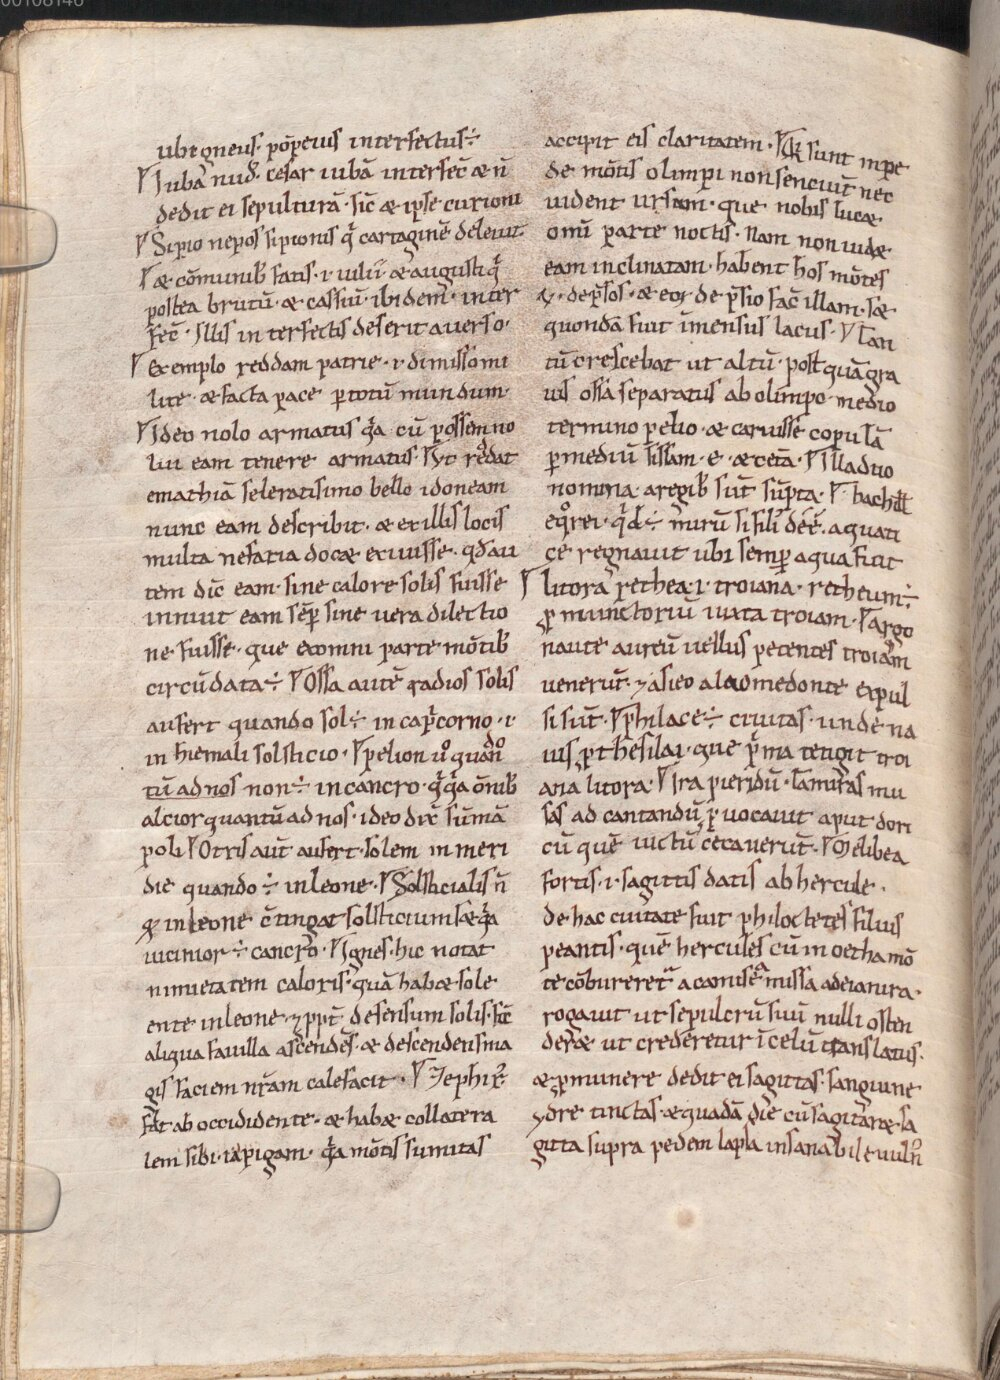 00108146
ubi gneus· pōpeius interfectus÷
Iubā nud̄· cesar iubā interfec̄ & n̄
dedit ei sepulturā· sic̄ & ipse curioni
Sipio nepos sipionis q̄ cartaginē deleuit·
& cōmunib; fatis· i· iulii & augusti q̄
postea brutū· & cassiū· ibidem· inter
fec̄· Illis interfectis deserit auerso·
Exemplo reddam patrie· i· dimisso mi
lite· & facta pace p totū mundum·
Ideo nolo armatus q̄a cū possem no
lui eam tenere armatus· Vt reddat
emathiā seleratisimo bello idoneam
nunc eam describit· & ex illis locis
multa nefaria doc& exiuisse· qd̄ au
tem dic̄ eam· sine calore solis fuisse
innuit eam sēp sine uera dilectio
ne· fuisse· que ex omni parte mōtib;
circūdata÷ Ossa autē radios solis
aufert quando sol÷ in cap̄corno· i·
in hiemali solsticio· pelion u° quando
tū ad nos non÷ in cancro· q̄q̄a ōnib;
alcior quantū ad nos· ideo dix̄ sūmā
poli Otris aūt aufert· solem in meri
die quando÷ in leone· Solsticialis n̄
q; in leone c̄tingat solsticium s& q̄a
uicinior÷ cancro· Ignes· hic notat
nimietatem caloris· quā hab& sole
ente in leone· ⁊ pp̄t̄ descensum solis· sic̄
aliqua fauilla ascendēs· & descendens ma
gis faciem nr̄am calefacit·
flat ab occididente· & hab& collatera
lem sibi· iapigam· q̄a mōtis sumitas
accipit eis claritatem· Qr̄ sunt in pe
de mōtis olimpi non senciūt nec
uident ursam· que nobis luc&
omī parte noctis· Nam non uid&
eam inclinatam· habent hos mōtes
de p̄sos· & eos de p̄sio fac̄ illam· s&
quondā fuit īmensus lacus· Tan
tū crescebat ut altū· postquā gra
uis ossa separatus ab olimpo· medio
termino pelio· & caruisse copulā
p mediū fissam· e· & cet̄a· Illa duo
nomina· a regib; sūt sūpta·
aquati
ce regnauit ubi semp aqua fuit
litora rethea· i· troiana· retheum÷
pmunctoriū iuxta troiam· Argo
naute aureū uellus petentes troiam
uenerūt· ⁊ asieo a laomedonte expul
si sūt· philace÷ ciuitas· unde na
uis p̄thesilai· que p̄ma tetigit troi
ana litora· Ira pieridū· Tamiras mu
sas ad cantandū p̄uocauit aput dori
cū quē uictū cecauerūt· Melibea
fortis· i· sagittis datis ab hercule·
de hac ciuitate fuit philoctetes filius
peantis· quē hercules cū in oetha mō
te cōbureret̄ a camisea missa a deianira·
rogauit ut sepulcrū suū nulli osten
der& ut crederetur ī celū translatus·
& p munere dedit ei sagittas· sanguine
ydre tinctas· & quadā die cū sagitar&· sa
gitta supra pedem lapsa insanabile uuln̄